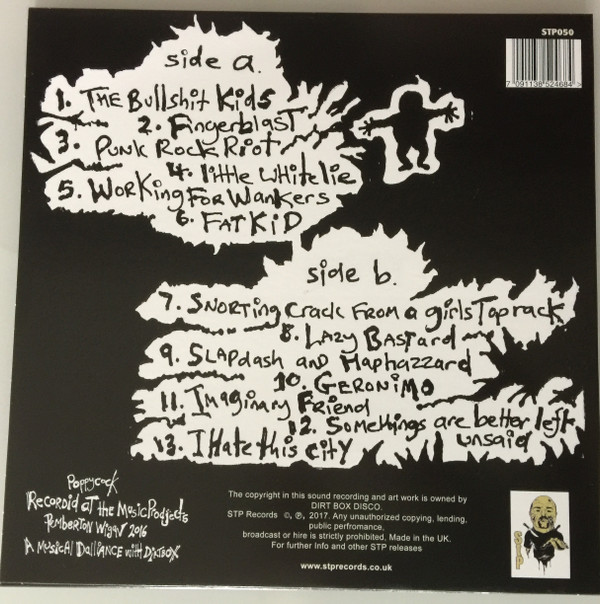 STP050
7 091138 524684 >
side a.
1. THE Bullshit Kids
2. FingerblasT
3. PUNK Rock Riot
4. little white lie
5. WORKing For Wankers
6. FAT KiD
side b.
7. SNORTing crack From a girls Top rack
8. LAZY BASTARD
9. SLAPdash AND Haphazzard
10. GERONiMO
11. Imaginary Friend
12. Somethings are better left
unsaid
13. I Hate this ciTY
Poppycock
Recordid at The Music Prodjects
Pemberton Wigan 2016
A Musical Dalliance with Dirtbox
The copyright in this sound recording and art work is owned by
DIRT BOX DISCO.
STP Records ©, ℗, 2017. Any unauthorized copying, lending,
public perfromance,
broadcast or hire is strictly prohibited, Made in the UK.
For further Info and other STP releases
www.stprecords.co.uk
STP